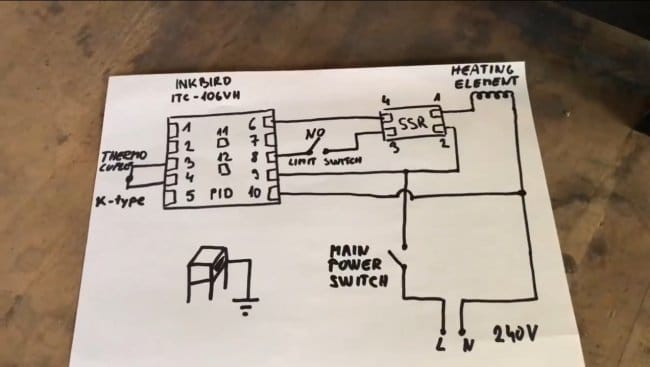 INKBIRD
ITC-106VH
HEATING
ELEMENT
1 6
2 11 7
3 12 8
4 9
5 PID 10
THERMO
K-type
NO
LIMIT SWITCH
4 1
SSR
3 2
MAIN
POWER
SWITCH
L N 240V